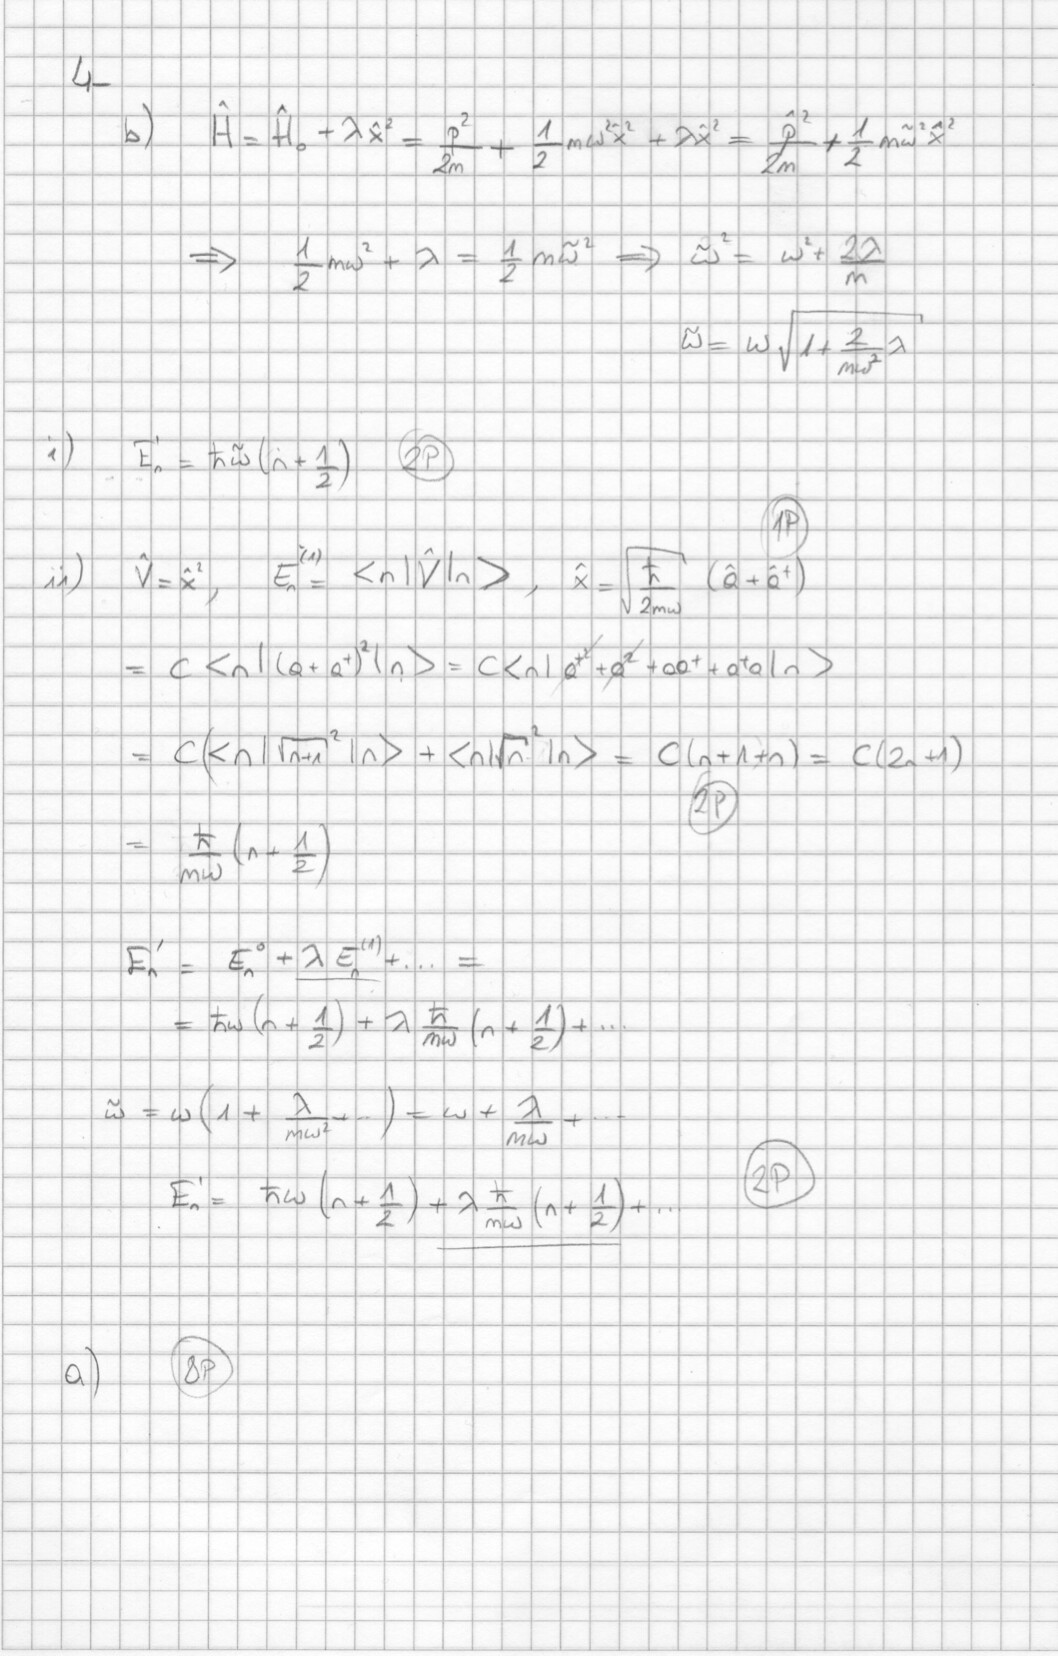 4
b) Ĥ = Ĥ₀ + λx̂² = p²/2m + 1/2 mω²x̂² + λx̂² = p̂²/2m + 1/2 mω̃²x̂²
⟹ 1/2 mω² + λ = 1/2 mω̃² ⟹ ω̃² = ω² + 2λ/m
ω̃ = ω√(1 + 2/mω² λ)
i) Eₙ' = ħω̃(n + 1/2) 2P
1P
ii) V̂ = x̂², Eₙ⁽¹⁾ = <n|V̂|n>, x̂ = √(ħ/2mω) (â + â⁺)
= C <n|(a + a⁺)²|n> = C<n|a⁺² + a² + aa⁺ + a⁺a|n>
= C(<n|√(n+1)²|n> + <n|√n²|n> = C(n+1+n) = C(2n+1)
2P
= ħ/mω (n + 1/2)
Eₙ' = Eₙ⁰ + λEₙ⁽¹⁾ + ... =
= ħω(n + 1/2) + λ ħ/mω (n + 1/2) + ...
ω̃ = ω(1 + λ/mω² + ..) = ω + λ/mω + ...
Eₙ' = ħω(n + 1/2) + λ ħ/mω (n + 1/2) + ... 2P
a) 8P